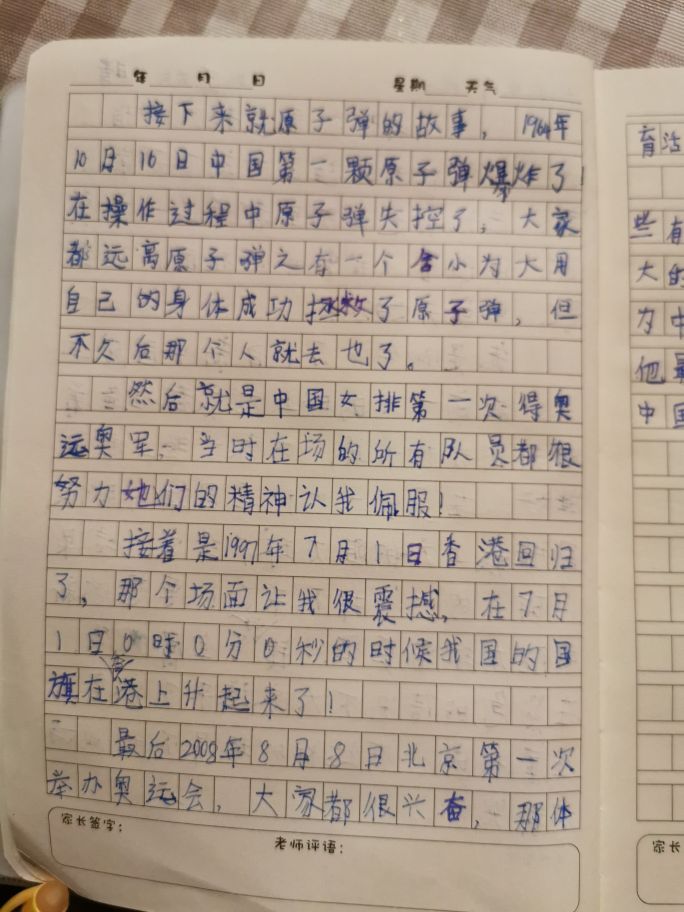 年 月 日 星期 天气
接下来就原子弹的故事，1964年
10月16日中国第一颗原子弹爆炸了！
在操作过程中原子弹失控了，大家
都远离原子弹之有一个舍小为大用
自己的身体成功拯救了原子弹，但
不久后那个人就去也了。
然后就是中国女排第一次得奥
远奥军，当时在场的所有队员都很
努力她们的精神认我佩服！
接着是1997年7月1日香港回归
了，那个场面让我很震撼，在7月
1日0时0分0秒的时候我国的国
旗在香港上升起来了！
最后2008年8月8日北京第一次
举办奥运会，大家都很兴奋，那体
家长签字：
老师评语：
育活
些有
大的
力中
他最
中国
家长